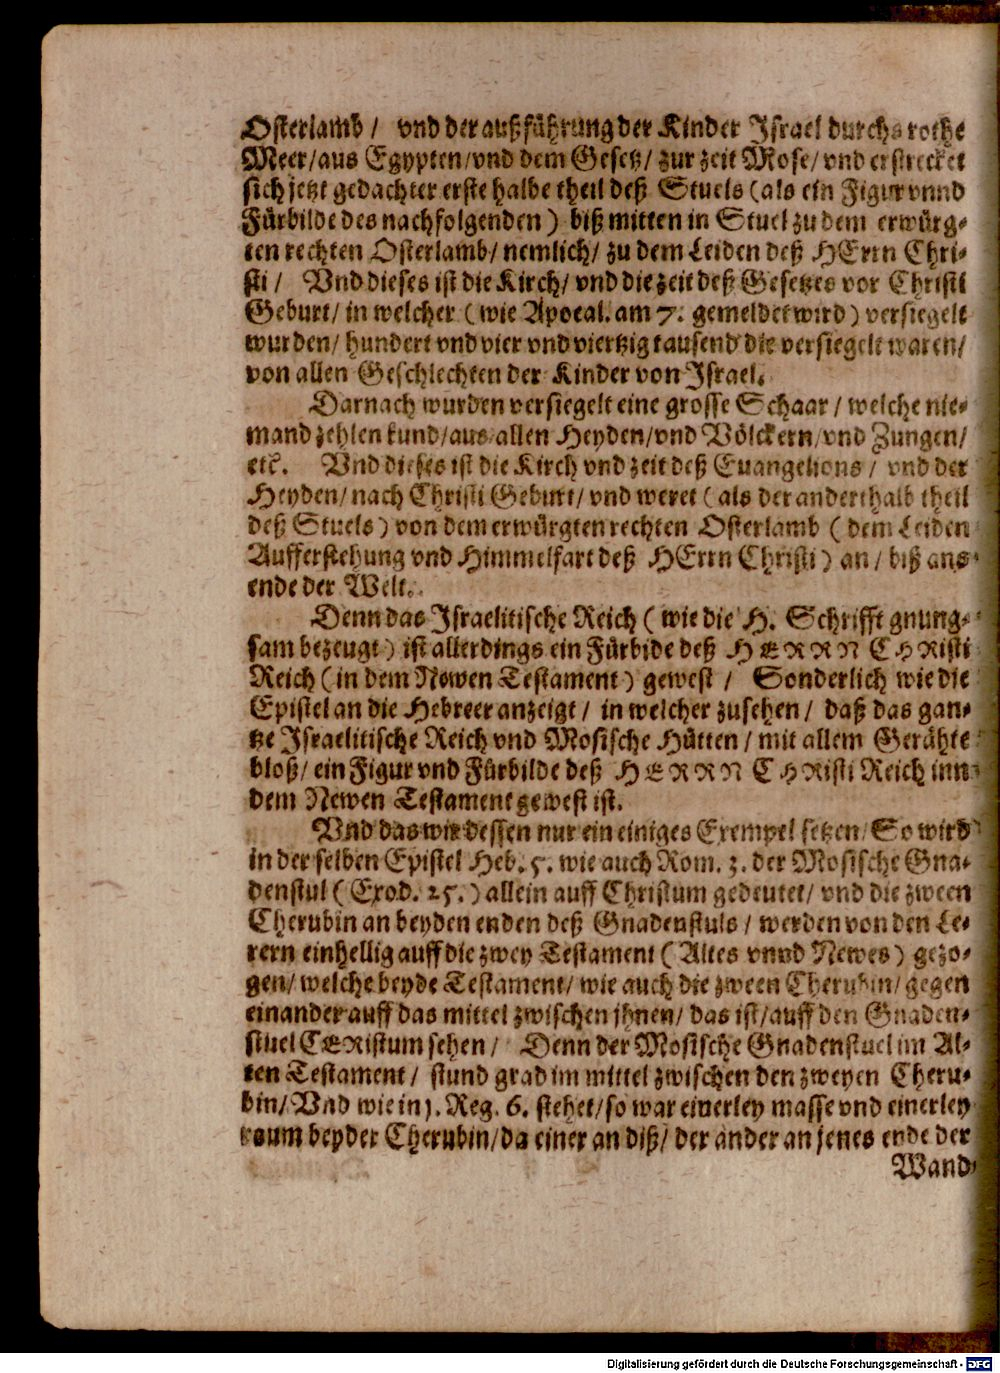 Osterlamb / vnd der außführung der Kinder Israel durchs rothe
Meer/aus Egypten/vnd dem Gesetz/ zur zeit Mose/ vnd erstrecket
sich jetzt gedachter erste halbe theil deß Stuels (als ein Figur vnnd
Fürbilde des nachfolgenden) biß mitten in Stuel zu dem erwürg-
ten rechten Osterlamb/ nemlich/ zu dem Leiden deß HErrn Chri-
sti / Vnd dieses ist die Kirch/ vnd die zeit deß Gesetzes vor Christi
Geburt/ in welcher (wie Apocal. am 7. gemeldet wird) versiegelt
wurden/ hundert vnd vier vnd viertzig tausend die versiegelt waren/
von allen Geschlechten der Kinder von Israel.
Darnach wurden versiegelt eine grosse Schaar / welche nie-
mand zehlen kund/aus allen Heyden/vnd Völckern/vnd Zungen/
etc. Vnd dieses ist die Kirch vnd zeit deß Euangelions / vnd der
Heyden/ nach Christi Geburt/ vnd weret (als der ander halb theil
deß Stuels) von dem erwürgten rechten Osterlamb (dem Leiden
Aufferstehung vnd Himmelfart deß HErrn Christi) an / biß ans
ende der Welt.
Denn das Israelitische Reich (wie die H. Schrifft gnung-
sam bezeugt) ist allerdings ein Fürbide deß HERRN CHRisti
Reich (in dem Newen Testament) gewest / Sonderlich wie die
Epistel an die Hebreer anzeigt / in welcher zusehen / daß das gan-
tze Israelitische Reich vnd Mosische Hütten / mit allem Gerähte
bloß/ ein Figur vnd Fürbilde deß HERRN CHRisti Reich inn
dem Newen Testament gewest ist.
Vnd das wir dessen nur ein einiges Exempel setzen/ So wird
in der selben Epistel Heb. 5. wie auch Rom. 3. der Mosische Gna-
denstul (Exod. 25.) allein auff Christum gedeutet/ vnd die zween
Cherubin an beyden enden deß Gnadenstuls / werden von den Le-
rern einhellig auff die zwey Testament (Altes vnnd Newes) gezo-
gen/ welche beyde Testament/ wie auch die zween Cherubin/ gegen
einander auff das mittel zwischen jhnen/ das ist/auff den Gnaden-
stuel CHRistum sehen / Denn der Mosische Gnadenstuel im Al-
ten Testament / stund grad im mittel zwischen den zweyen Cheru-
bin/ Vnd wie in 1. Reg. 6. stehet/so war einerley masse vnd einerley
raum beyder Cherubin/da einer an diß/ der ander an jenes ende der
Wand
Digitalisierung gefördert durch die Deutsche Forschungsgemeinschaft - DFG